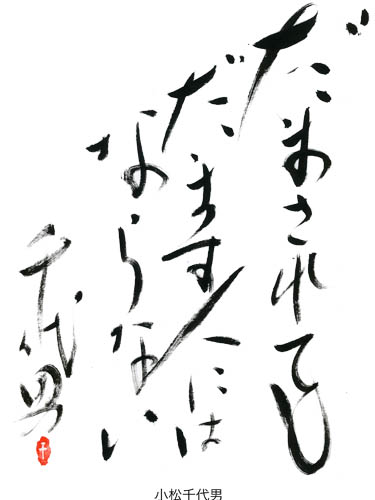 だまされても
だます人には
ならない
千代男
千
小松千代男